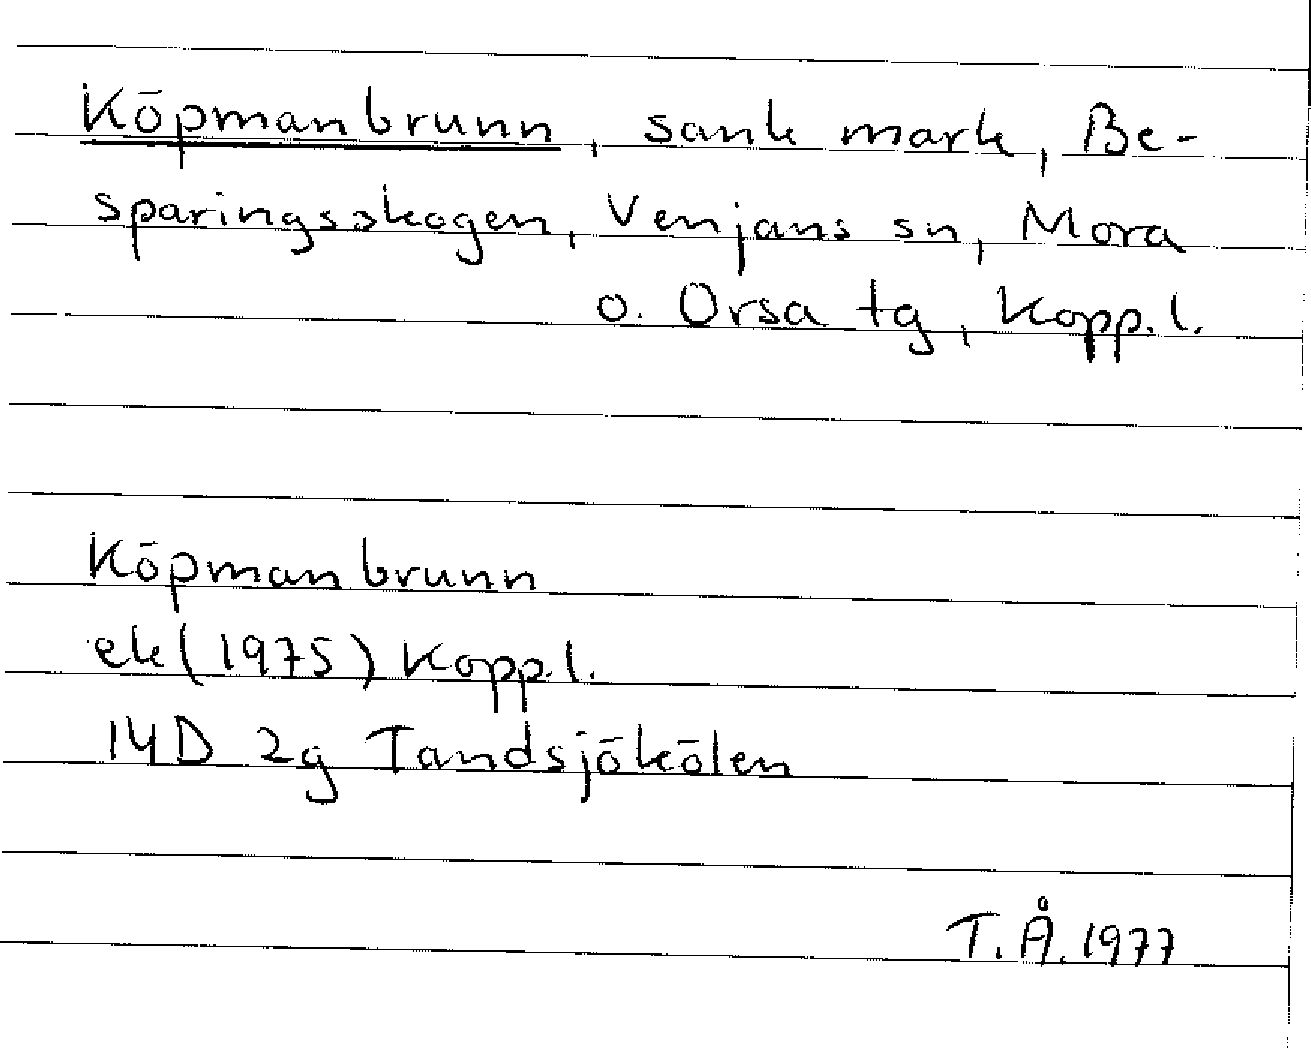 Köpmanbrunn, sank mark, Be-
sparingsskogen, Venjans sn, Mora
o. Orsa tg, Kopp. l.
Köpmanbrunn
ek (1975) Kopp. l.
14D 2g Tandsjökölen
T. Å. 1977